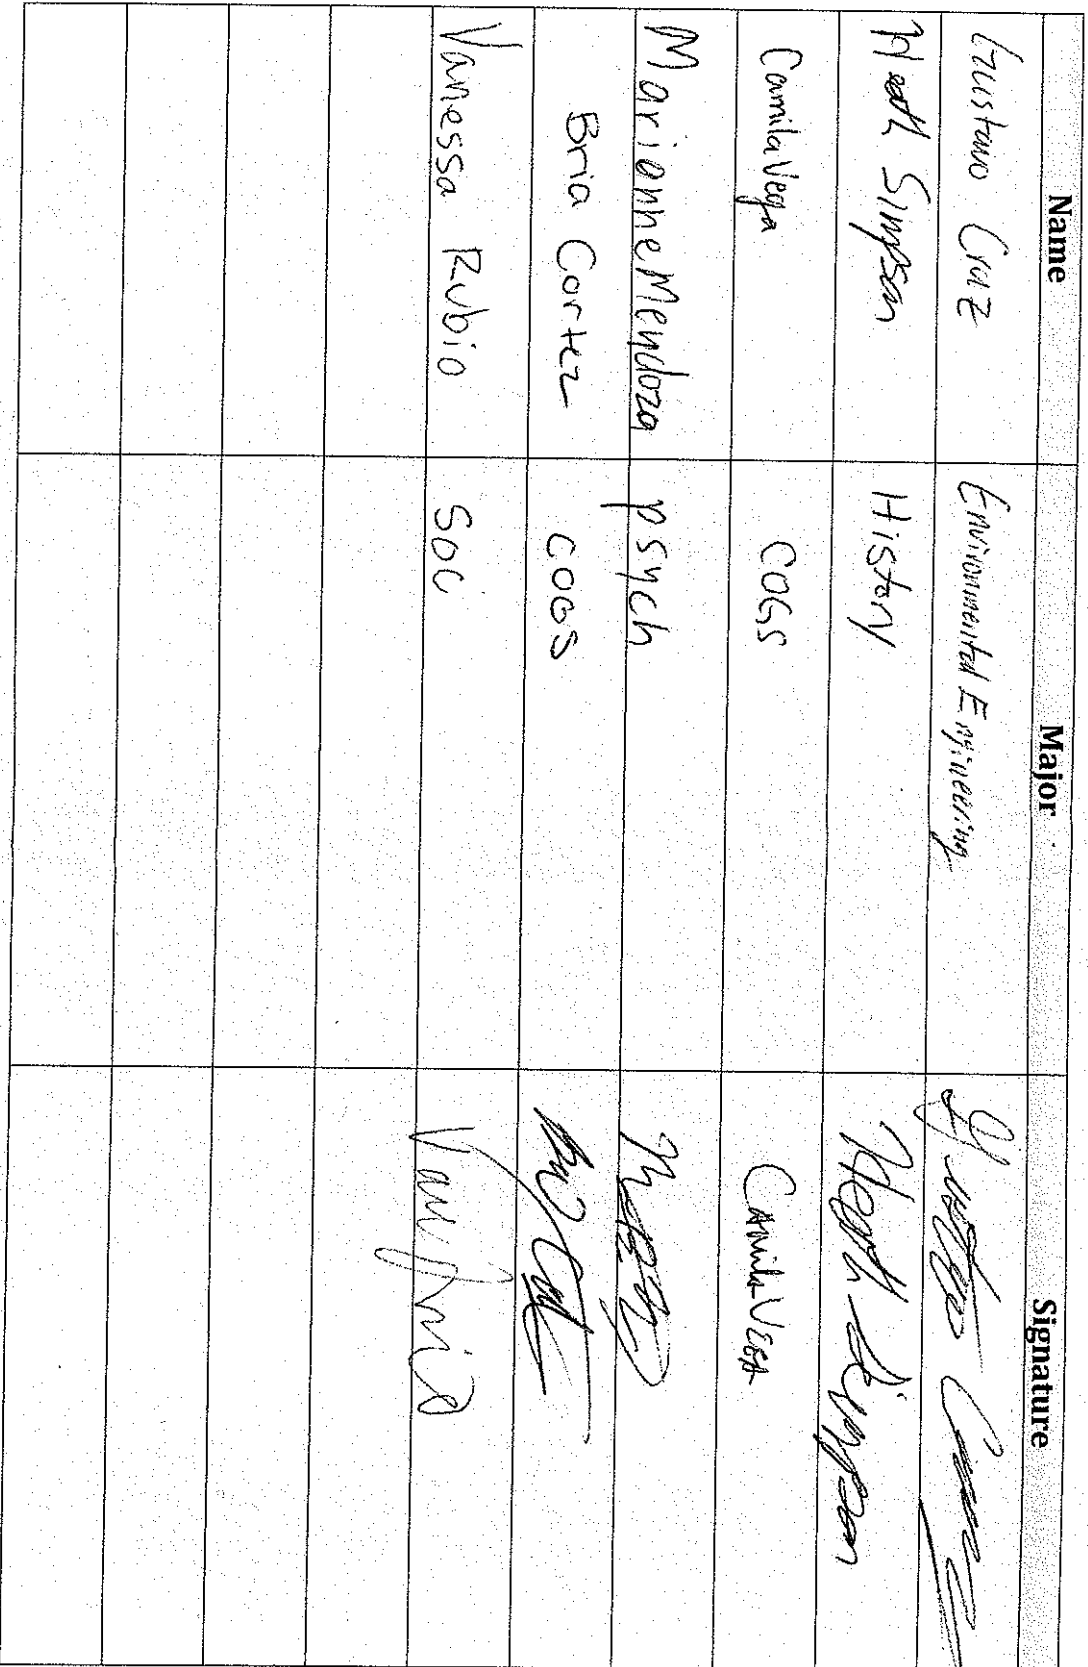 Name Major Signature
Gustavo Cruz Environmental Engineering Gustavo Cruz
Heath Simpson History Heath Simpson
Camila Vega COGS Camila Vega
Marionne Mendoza psych
Bria Cortez COGS
Vanessa Rubio Soc